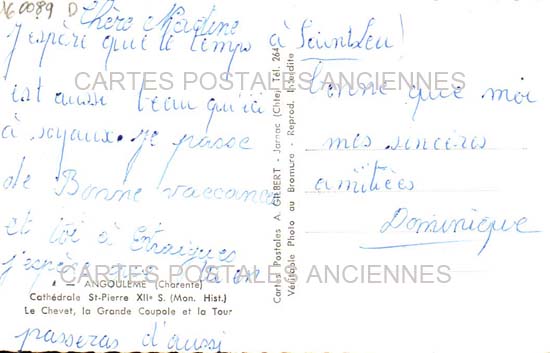 16 0089 D
Chère Martine
J'espère que le temps à Saint Leu!
est aussi beau qu'ici
à soyaux. je passe
de Bonne vaccance
et toi à
j'espère que tu en
passeras d'aussi
bonne que moi
mes sincères
amitiées
Dominique
CARTES POSTALES ANCIENNES
CARTES POSTALES ANCIENNES
4 — ANGOULÊME (Charente)
Cathédrale St-Pierre XIIe S. (Mon. Hist.)
Le Chevet, la Grande Coupole et la Tour
Cartes Postales A. GILBERT - Jarnac (Chte) Tél. 264
Véritable Photo au Bromure - Reprod. Interdite